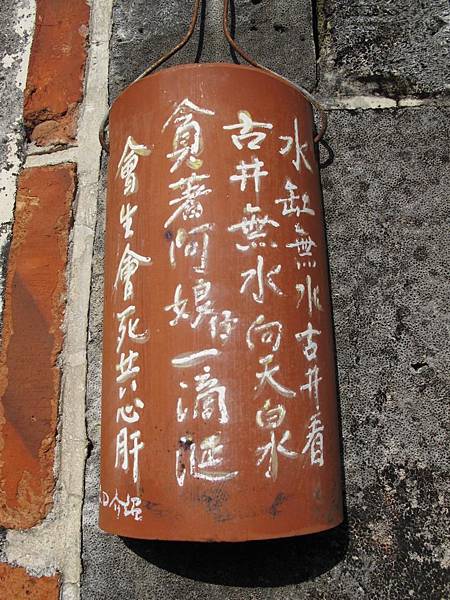 水缸無水古井看
古井無水向天泉
貪著阿娘仔一滴涎
會生會死共心肝